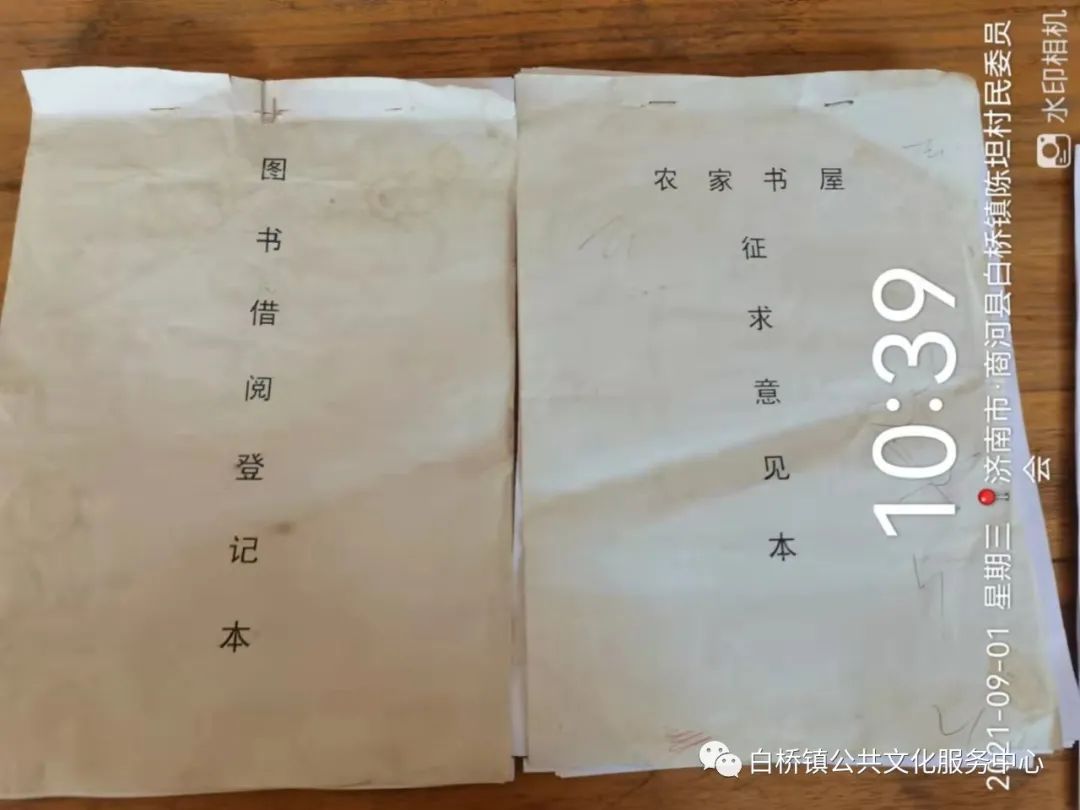 图书借阅登记本
农家书屋
征求意见本
10:39
2021-09-01 星期三 济南市·商河县白桥镇陈坦村民委员会
水印相机
白桥镇公共文化服务中心